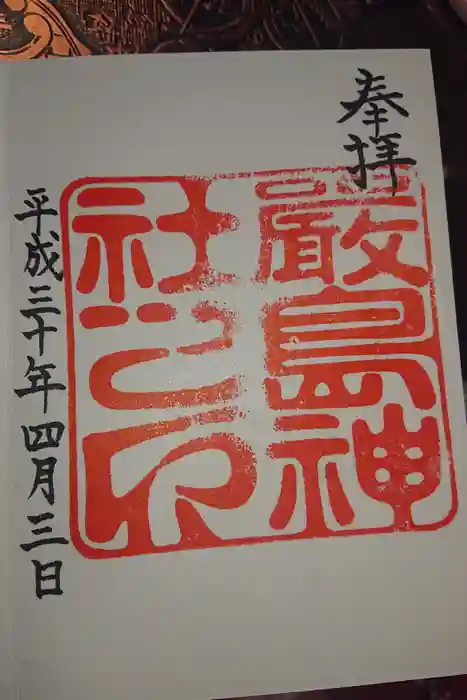 奉拝
嚴島神
社之印
平成三十年四月三日